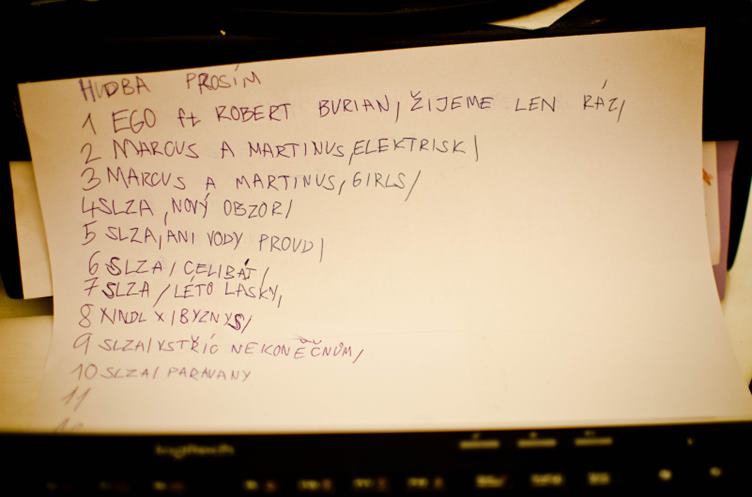 HUDBA PROSÍM
1 EGO ft ROBERT BURIAN/ŽIJEME LEN RÁZ/
2 MARCUS A MARTINUS/ELEKTRISK/
3 MARCUS A MARTINUS/GIRLS/
4 SLZA /NOVÝ OBZOR/
5 SLZA/ANI VODY PROUD/
6 SLZA/CELIBÁT/
7 SLZA/LÉTO LÁSKY/
8 XINDL X/BYZNYS/
9 SLZA/VSTŘÍC NEKONĚČNÚM/
10 SLZA/PARAVANY
11
logitech